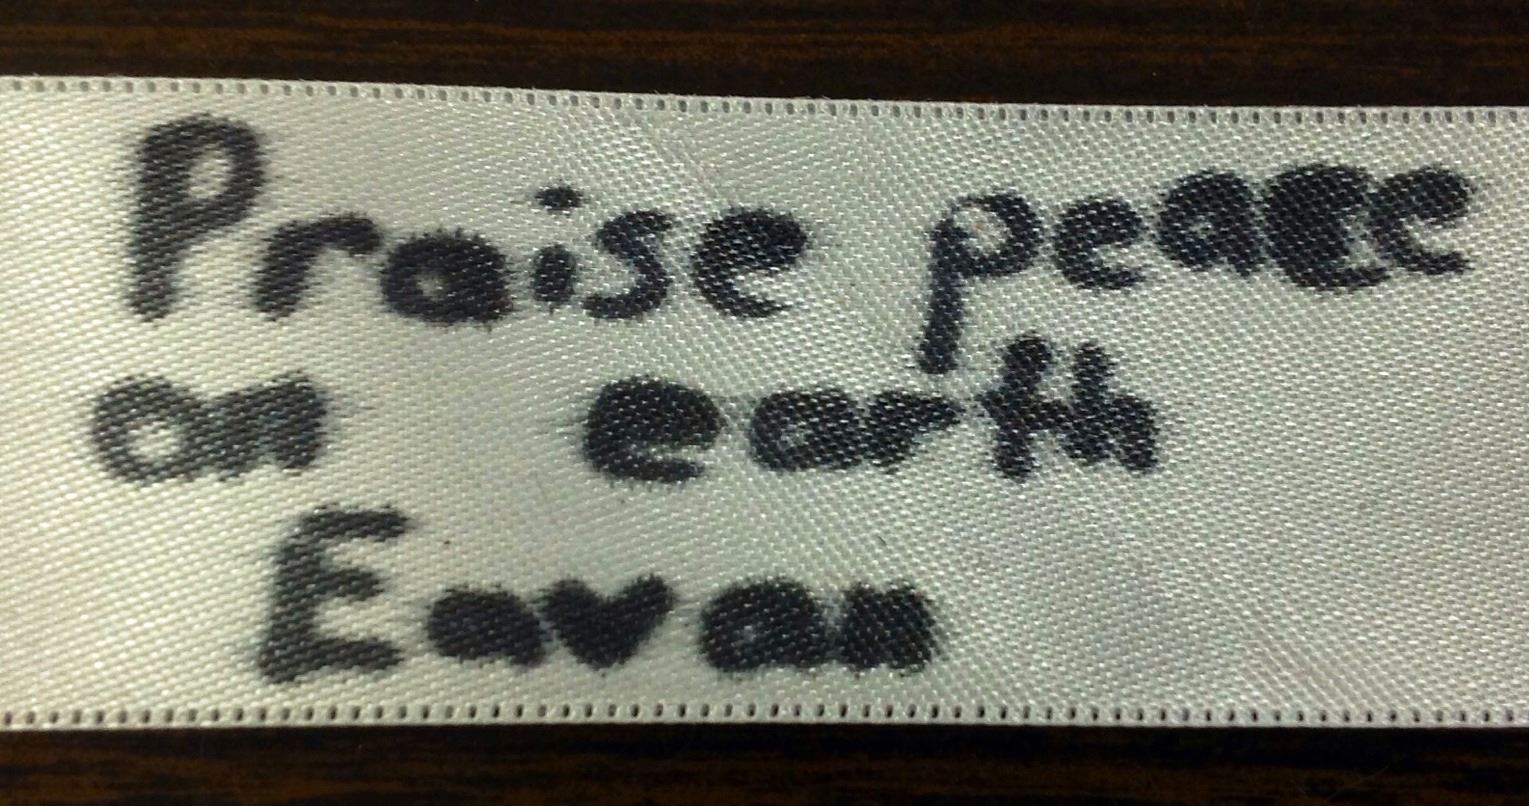 Praise peace
on earth
Eavan